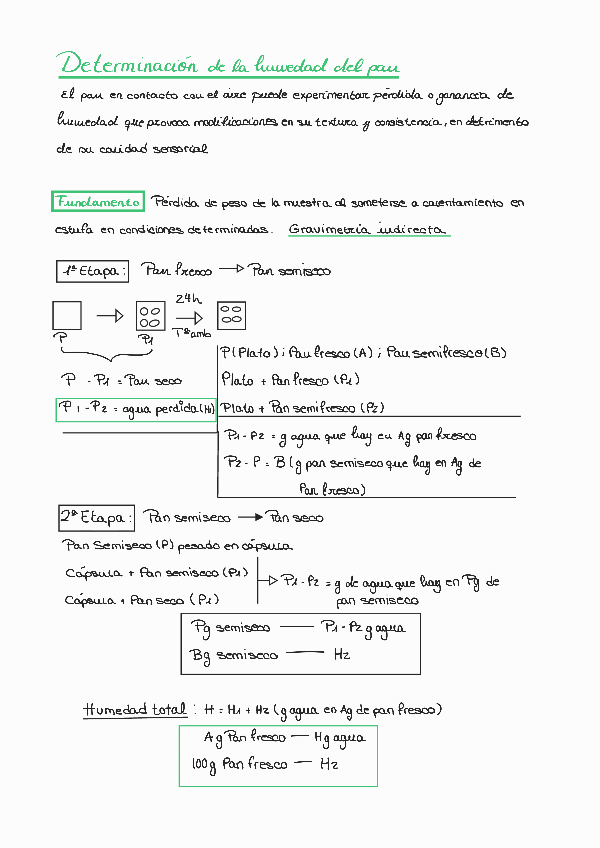 Determinación de la humedad del pan
El pan en contacto con el aire puede experimentar pérdida o ganancia de
humedad que provoca modificaciones en su textura y consistencia, en detrimento
de su calidad sensorial
Fundamento Pérdida de peso de la muestra al someterse a calentamiento en
estufa en condiciones determinadas. Gravimetría indirecta
1ª Etapa: Pan fresco → Pan semiseco
24h
P P1 Tª amb
P (Plato) ; Pan fresco (A) ; Pan semifresco (B)
P - P1 = Pan seco
Plato + Pan fresco (P1)
P1 - P2 = agua perdida (H1)
Plato + Pan semifresco (P2)
P1 - P2 = g agua que hay en Ag pan fresco
P2 - P = B (g pan semiseco que hay en Ag de
Pan fresco)
2ª Etapa: Pan semiseco → Pan seco
Pan Semiseco (P) pesado en cápsula
Cápsula + Pan semiseco (P1)
Cápsula + Pan seco (P2)
P1 - P2 = g de agua que hay en Pg de
pan semiseco
Pg semiseco — P1 - P2 g agua
Bg semiseco — H2
Humedad total : H = H1 + H2 (g agua en Ag de pan fresco)
Ag Pan fresco — Hg agua
100g Pan fresco — H2